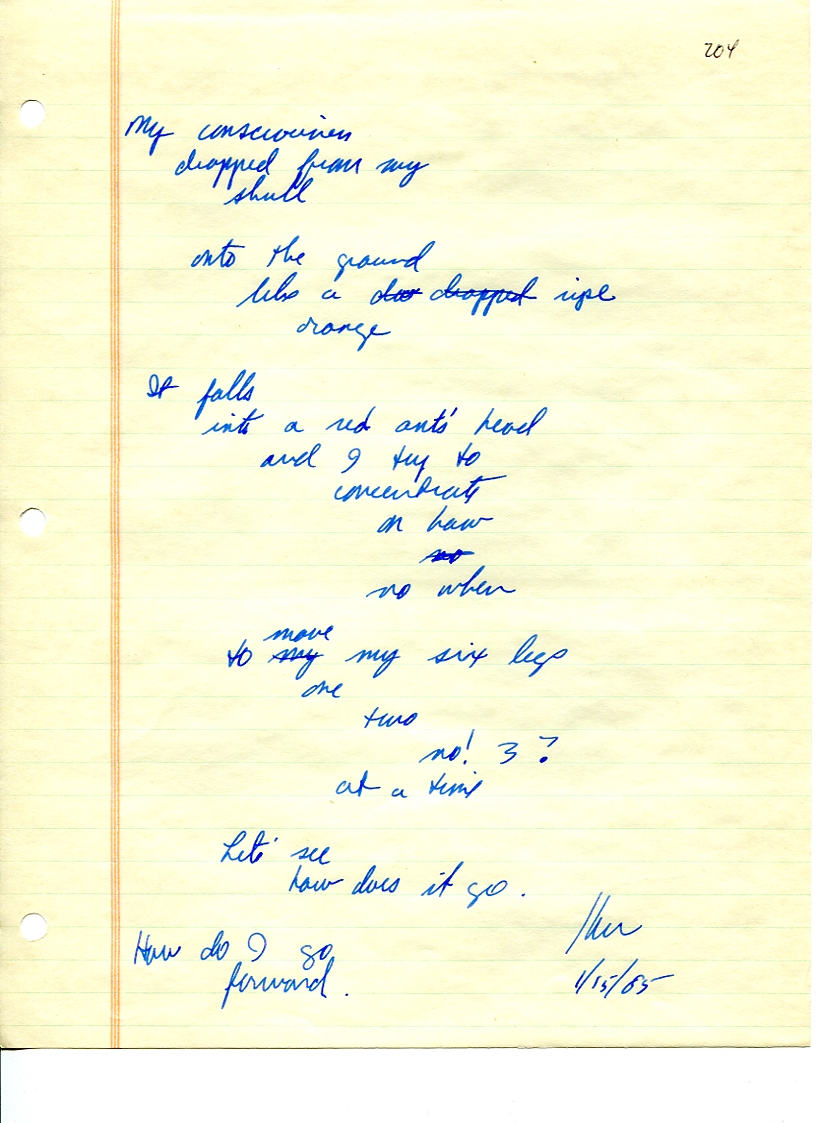 204
My consciousness
dropped from my
skull
onto the ground
like a dropped ripe
orange
It falls
into a red ants' head
and I try to
concentrate
on how
no
no when
move
to my my six legs
one
two
no! 3 ?
at a time
Let's see
how does it go.
How do I go
forward.
1/15/85